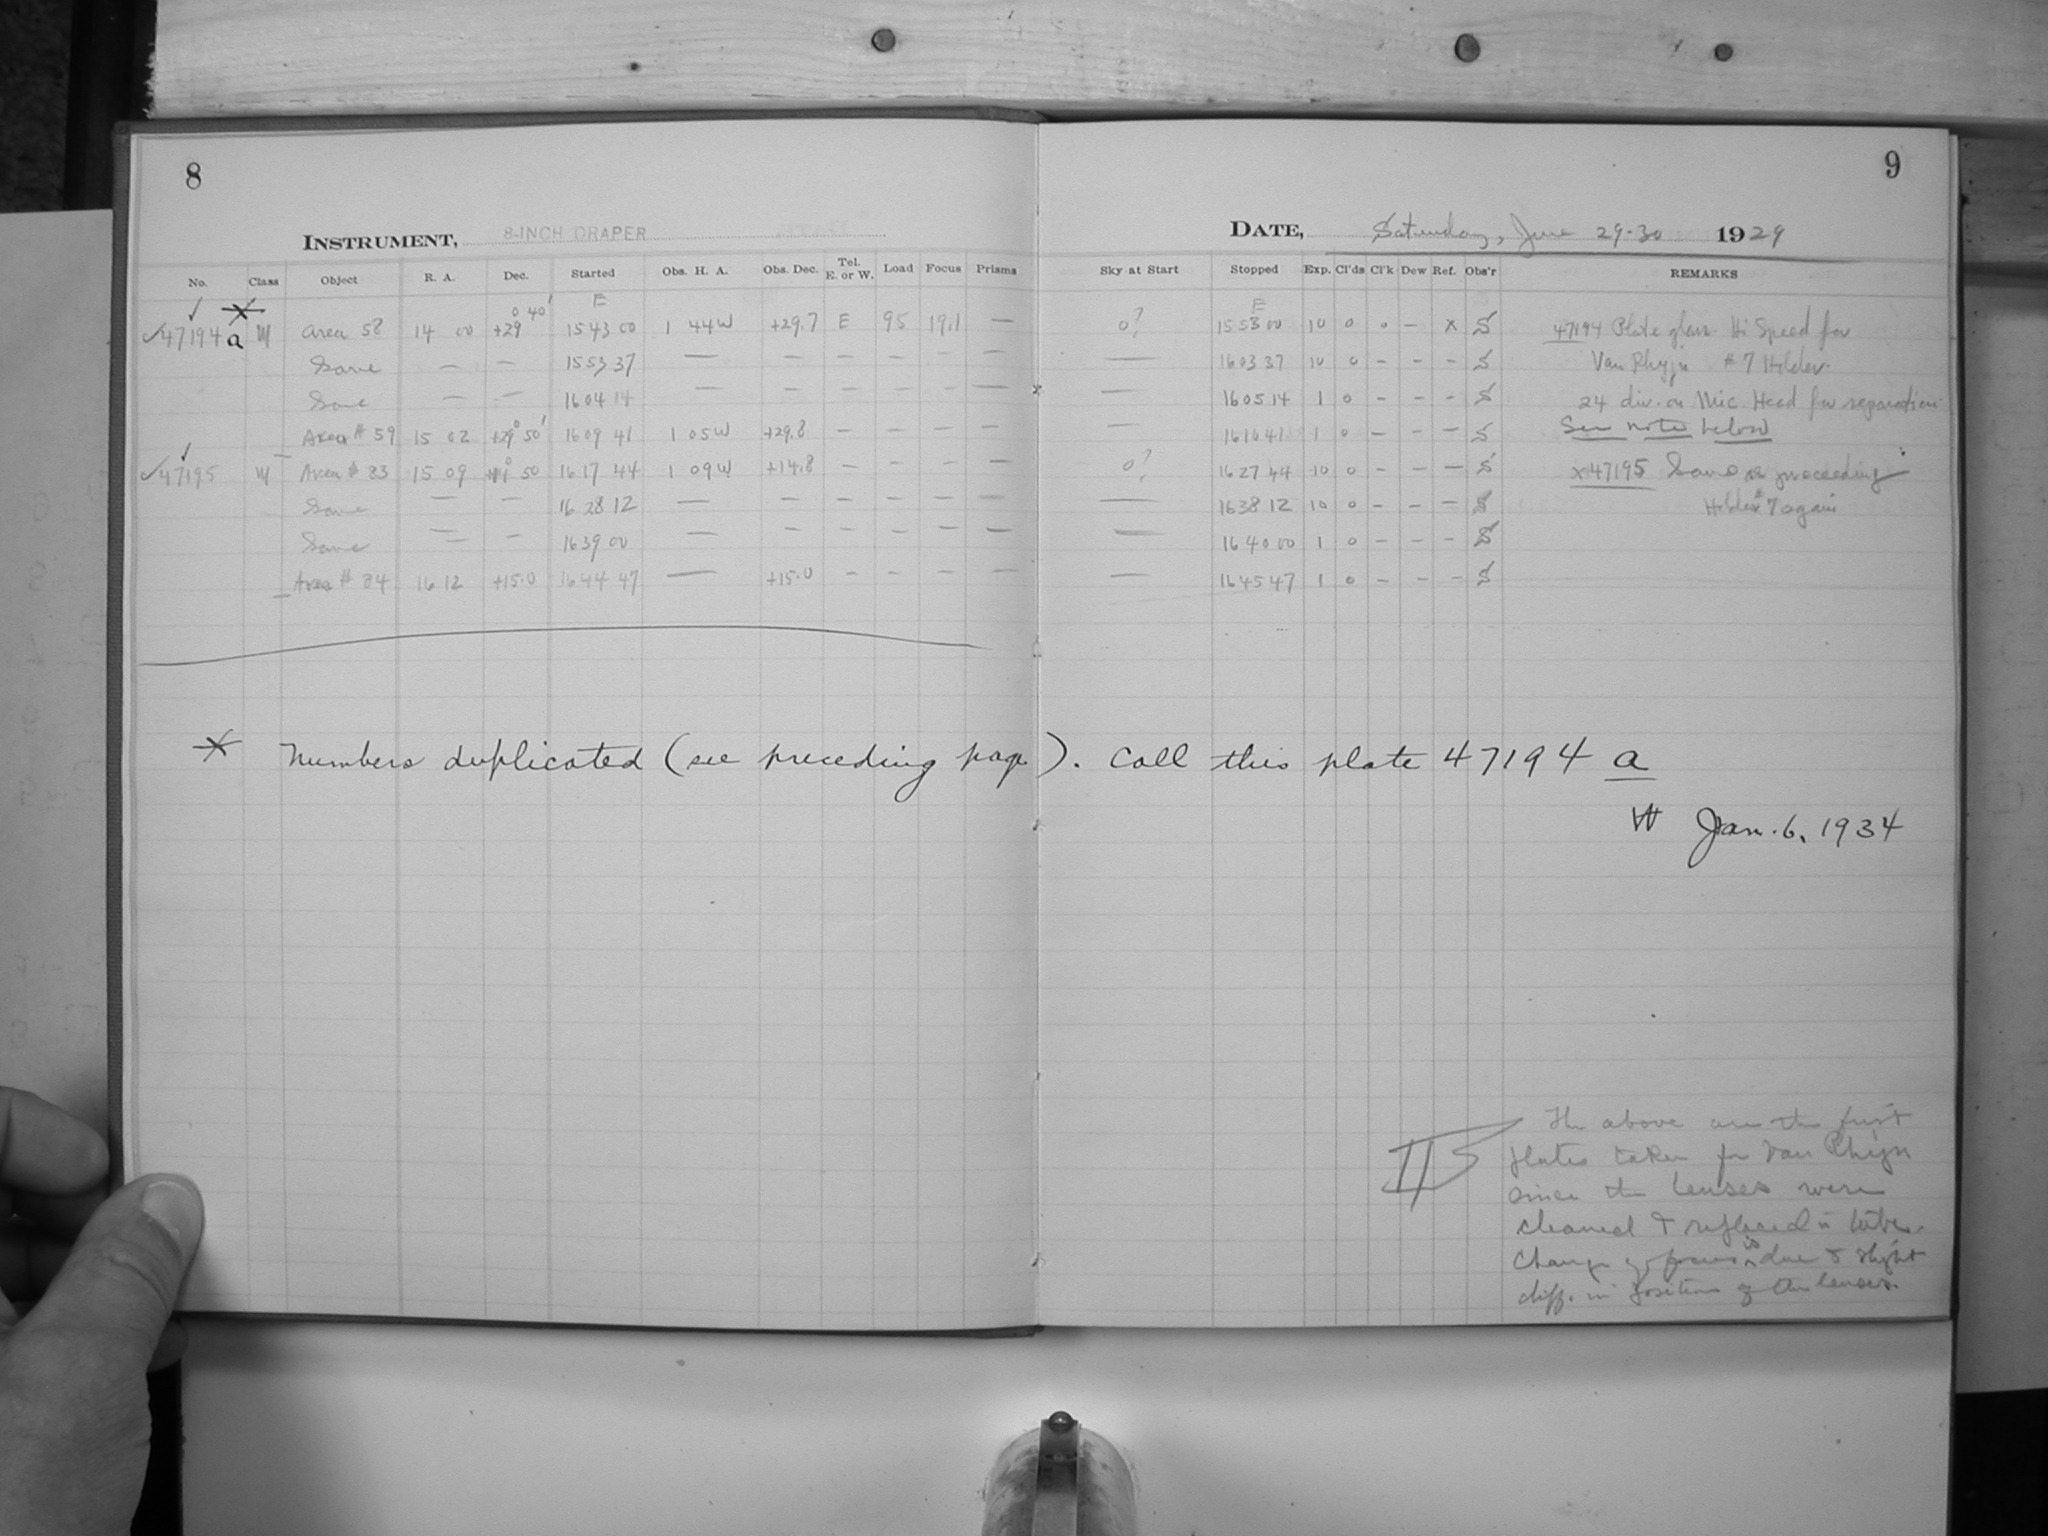 8
INSTRUMENT, 8-INCH DRAPER
No. Class Object R. A. Dec. Started Obs. H. A. Obs. Dec. Tel. E. or W. Load Focus Prisms
E
47194 a M Area 58 14 00 +29° 40' 15 43 00 1 44 W +29.7 E 95 19.1 —
Same — — 15 53 37 — — — — — —
Same — — 16 04 14 — — — — — —
Area # 59 15 02 +29° 50' 16 09 41 1 05 W +29.8 — — — —
47195 M Area # 83 15 09 50 16 17 44 1 09 W +14.8 — — — —
Same — — 16 28 12 — — — — — —
Same — — 16 39 00 — — — — — —
Area # 84 16 12 +15.0 16 44 47 — +15.0 — — — —
9
DATE, Saturday, June 29-30 1929
Sky at Start Stopped Exp. Cl'ds Cl'k Dew Ref. Obs'r REMARKS
E
0? 15 53 00 10 0 0 — x S 47194 Plate glass Hi Speed for
— 16 03 37 10 0 - - - S Van Rhyn # 7 Holder
— 16 05 14 1 0 - - - S 24 div. on Mic. Head for separation
— 16 10 41 1 0 - - - S See note below
0? 16 27 44 10 0 - - - S x47195 Same as preceeding
— 16 38 12 10 0 - - - S Holder # 7 again
— 16 40 00 1 0 - - - S
— 16 45 47 1 0 - - - S
* Numbers duplicated (see preceding page). Call this plate 47194 a
Jan. 6, 1934
The above are the first
plates taken for Van Rhijn
since the lenses were
cleaned & replaced in tube.
Change of focus is due to slight
diff. in position of the lenses.